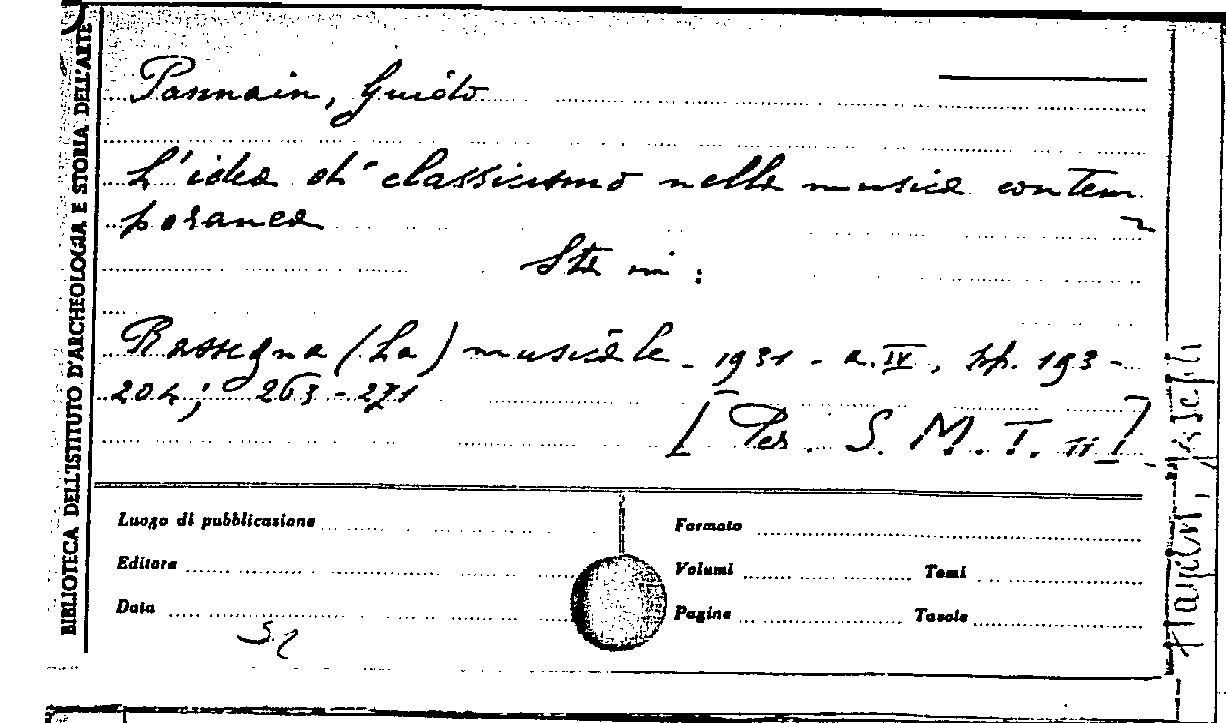 BIBLIOTECA DELL'ISTITUTO D'ARCHEOLOGIA E STORIA DELL'ARTE
Pannain, Guido
L'idea di classicismo nella musica contem
poranea
Sta in:
Rassegna (La) musicale - 1931 - a. IV, pp. 193-
204; 263-271
[Per. S. M. T. 11]
Luogo di pubblicazione
Formato
Editore
Volumi
Tomi
Data
Pagine
Tavole